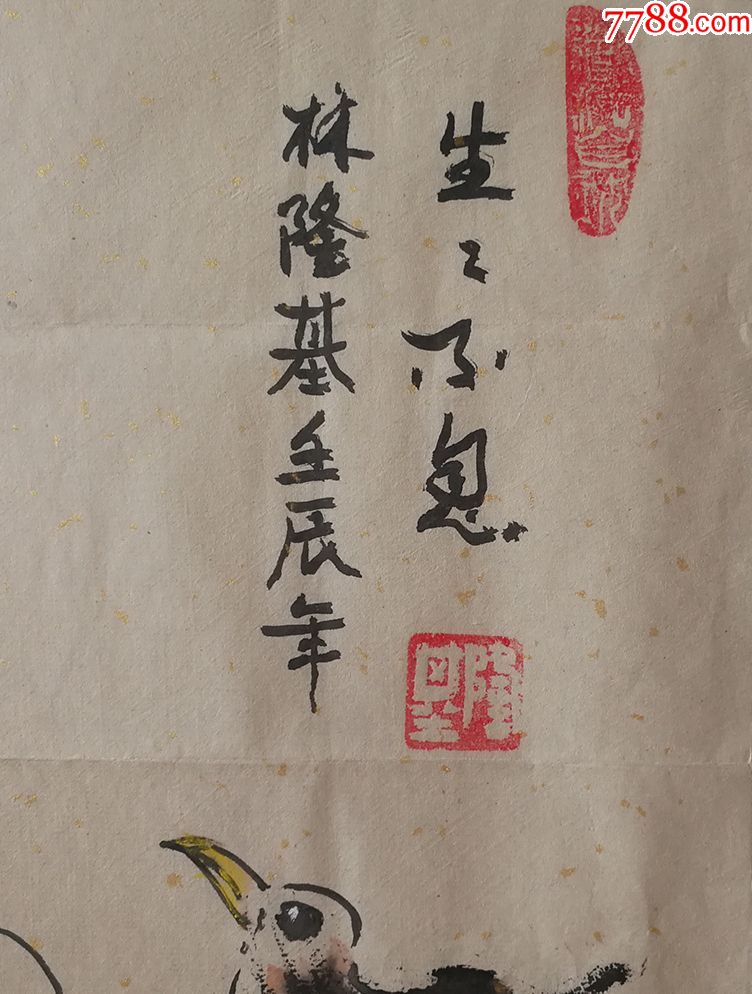 7788.com
生々不息
林隆基壬辰年
隆基